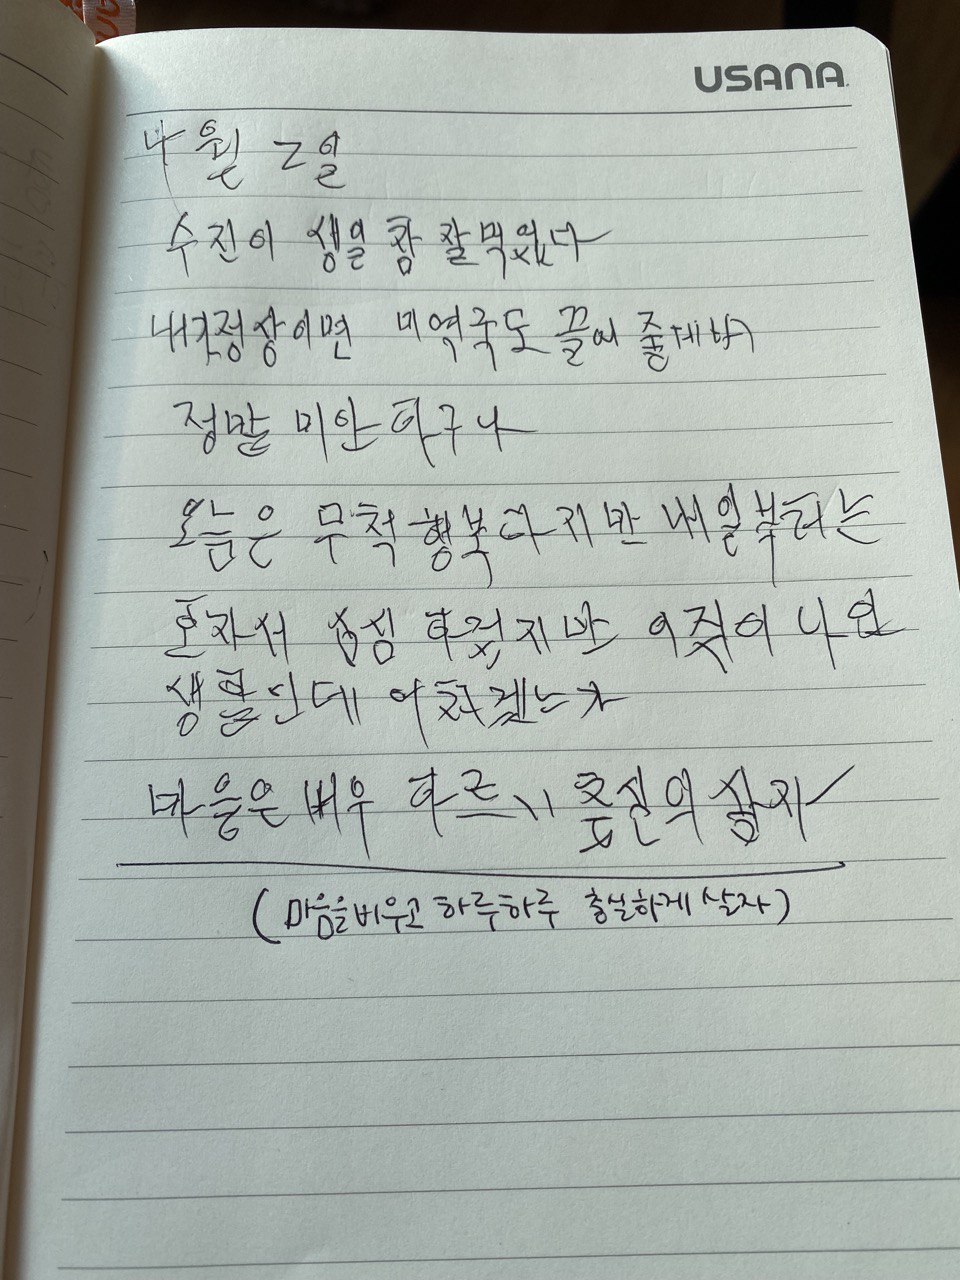 USANA
4월 2일
수진이 생일 잘먹었다
내가정상이면 미역국도 끌여 줄게
정말 미안 하구나
오늘은 무척 행복하지만 내일부터는
혼자서 하겠지만 이것이 나의
생활인데
마음은 비우 하르〃 충실의 살자
(마음을비우고 하루하루 충실하게 살자)